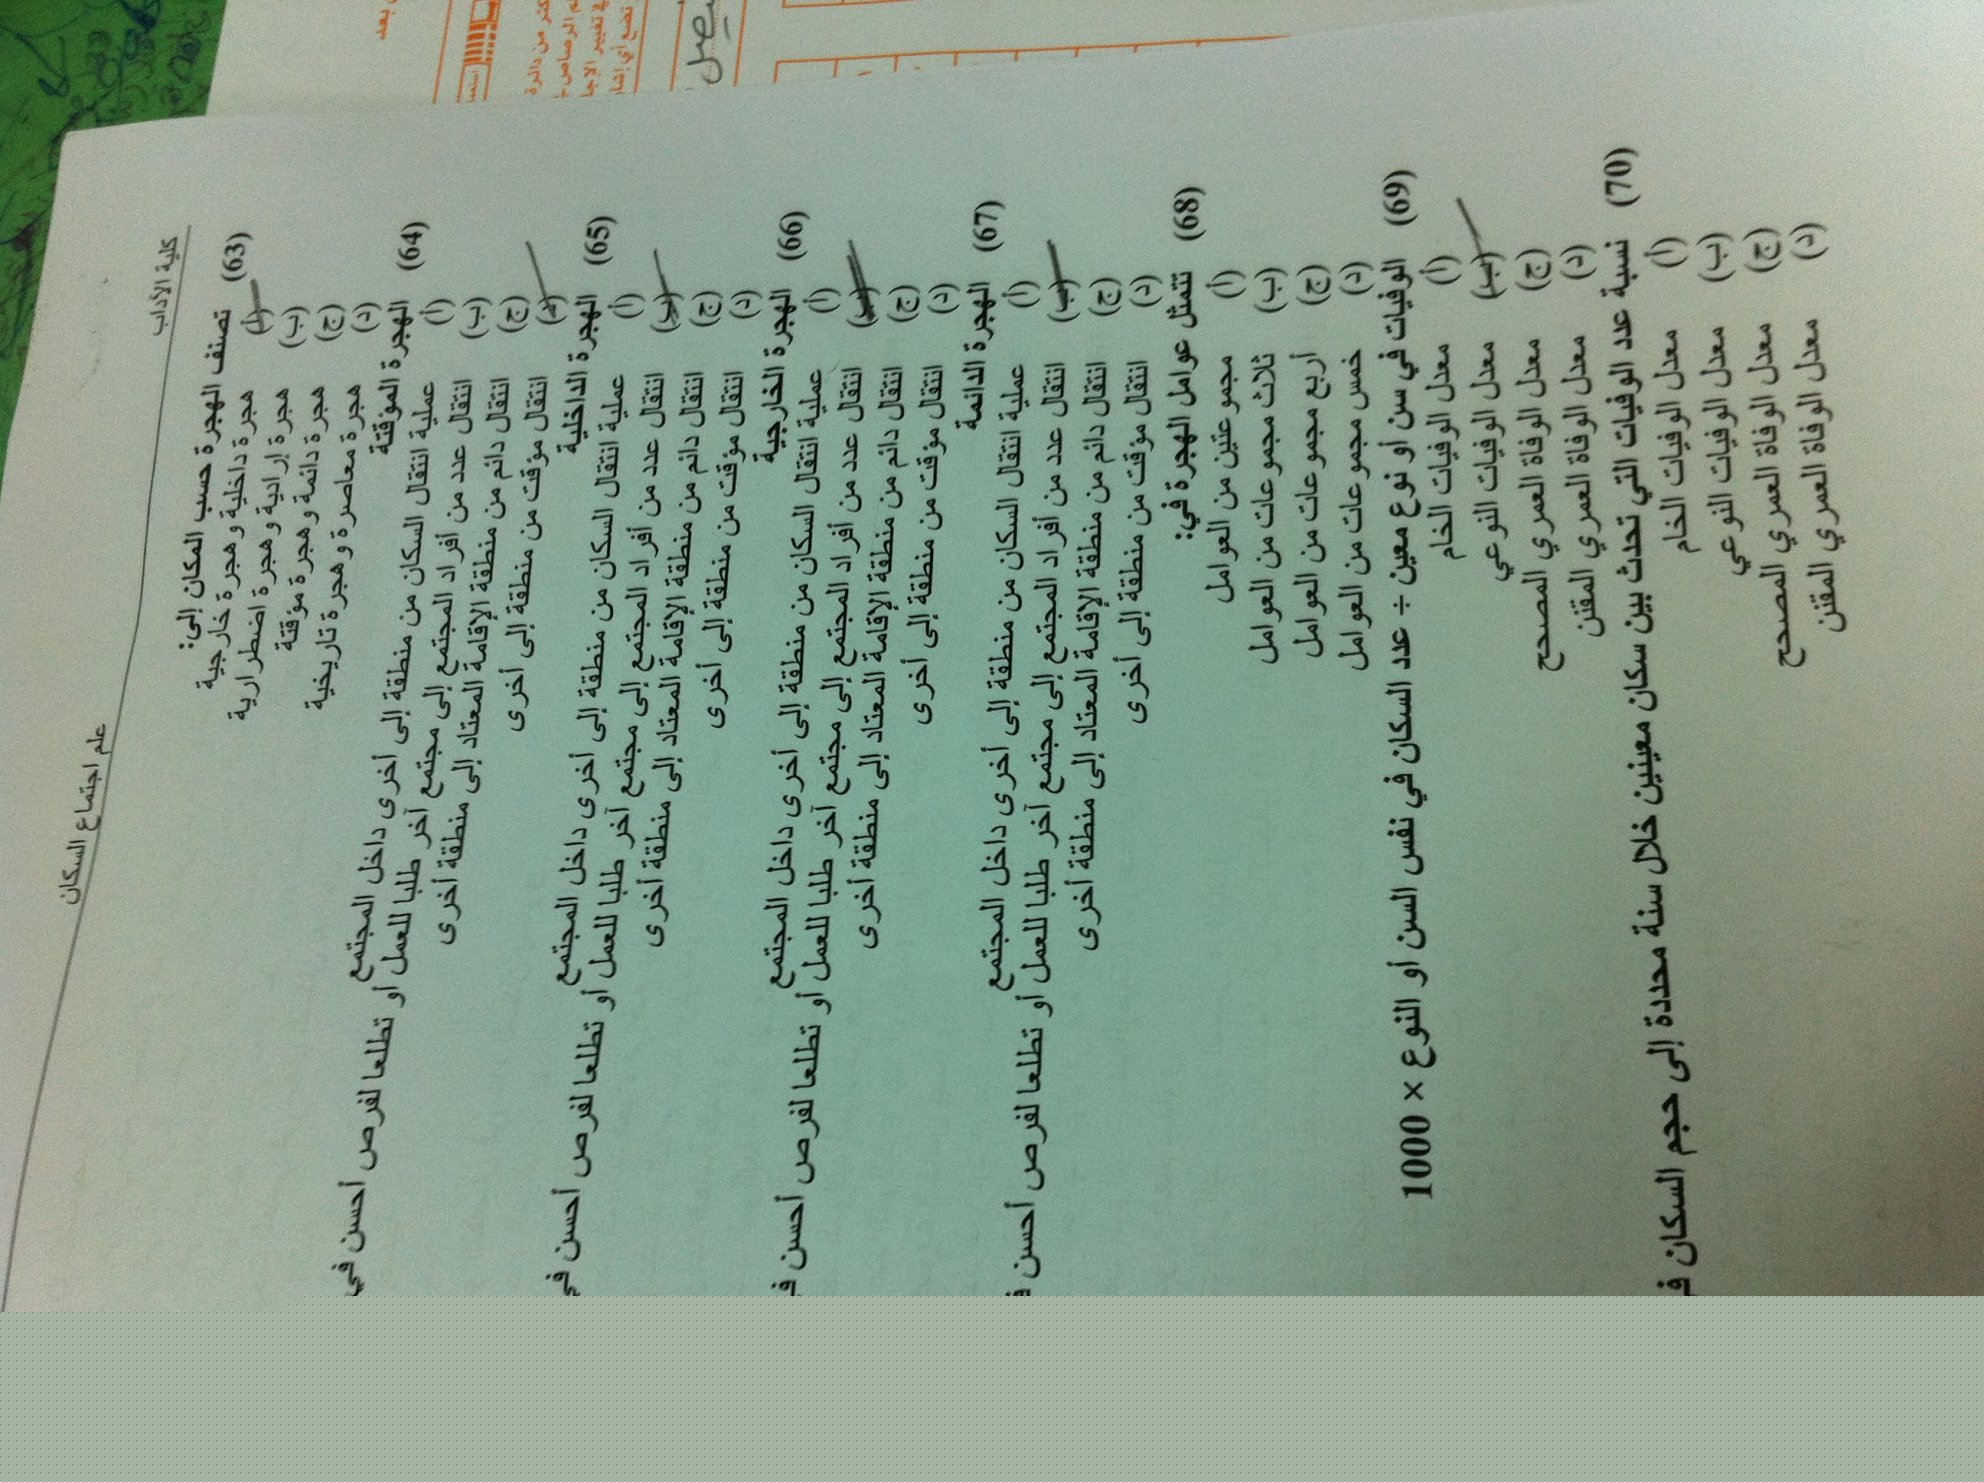 كلية الأداب
علم اجتماع السكان
(63) تصنف الهجرة حسب المكان إلى:
(أ) هجرة داخلية وهجرة خارجية
(ب) هجرة إرادية وهجرة اضطرارية
(ج) هجرة دائمة وهجرة مؤقتة
(د) هجرة معاصرة وهجرة تاريخية
(64) الهجرة المؤقتة
(أ) عملية انتقال السكان من منطقة إلى أخرى داخل المجتمع
(ب) انتقال عدد من أفراد المجتمع إلى مجتمع آخر طلبا للعمل أو تطلعا لفرص أحسن في
(ج) انتقال دائم من منطقة الإقامة المعتاد إلى منطقة أخرى
(د) انتقال مؤقت من منطقة إلى أخرى
(65) الهجرة الداخلية
(أ) عملية انتقال السكان من منطقة إلى أخرى داخل المجتمع
(ب) انتقال عدد من أفراد المجتمع إلى مجتمع آخر طلبا للعمل أو تطلعا لفرص أحسن في
(ج) انتقال دائم من منطقة الإقامة المعتاد إلى منطقة أخرى
(د) انتقال مؤقت من منطقة إلى أخرى
(66) الهجرة الخارجية
(أ) عملية انتقال السكان من منطقة إلى أخرى داخل المجتمع
(ب) انتقال عدد من أفراد المجتمع إلى مجتمع آخر طلبا للعمل أو تطلعا لفرص أحسن
(ج) انتقال دائم من منطقة الإقامة المعتاد إلى منطقة أخرى
(د) انتقال مؤقت من منطقة إلى أخرى
(67) الهجرة الدائمة
(أ) عملية انتقال السكان من منطقة إلى أخرى داخل المجتمع
(ب) انتقال عدد من أفراد المجتمع إلى مجتمع آخر طلبا للعمل أو تطلعا لفرص أحسن
(ج) انتقال دائم من منطقة الإقامة المعتاد إلى منطقة أخرى
(د) انتقال مؤقت من منطقة إلى أخرى
(68) تتمثل عوامل الهجرة في:
(أ) مجموعتين من العوامل
(ب) ثلاث مجموعات من العوامل
(ج) أربع مجموعات من العوامل
(د) خمس مجموعات من العوامل
(69) الوفيات في سن أو نوع معين ÷ عدد السكان في نفس السن أو النوع × 1000
(أ) معدل الوفيات الخام
(ب) معدل الوفيات النوعي
(ج) معدل الوفاة العمري المصحح
(د) معدل الوفاة العمري المقنن
(70) نسبة عدد الوفيات التي تحدث بين سكان معينين خلال سنة محددة إلى حجم السكان
(أ) معدل الوفيات الخام
(ب) معدل الوفيات النوعي
(ج) معدل الوفاة العمري المصحح
(د) معدل الوفاة العمري المقنن